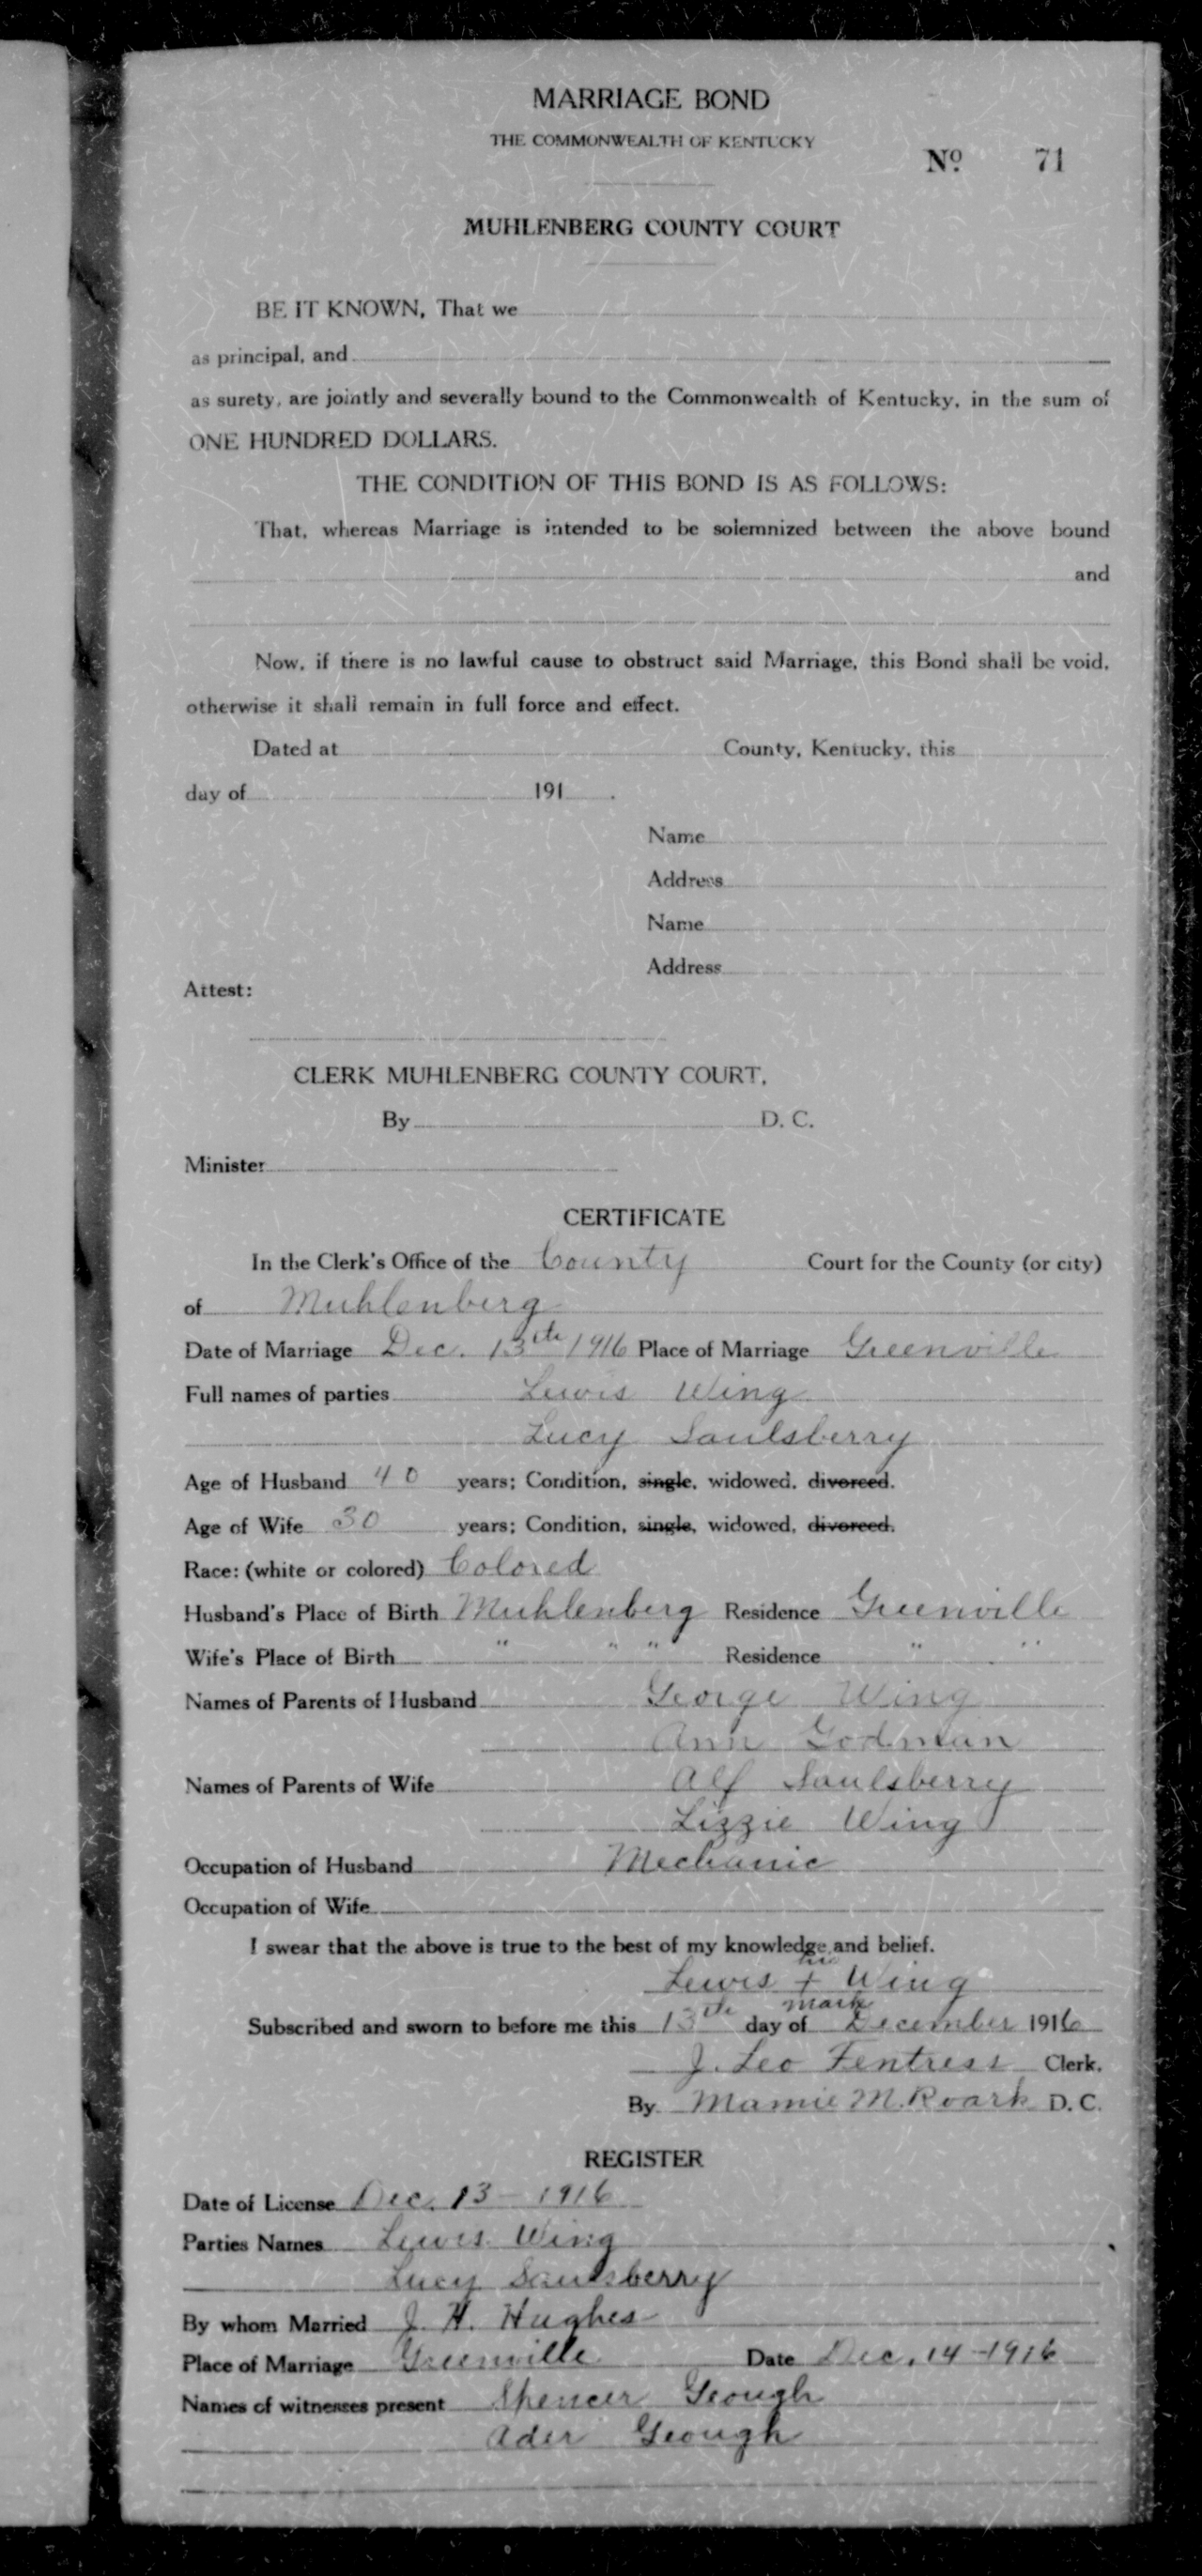 MARRIAGE BOND
THE COMMONWEALTH OF KENTUCKY
No. 71
MUHLENBERG COUNTY COURT
BE IT KNOWN, That we
as principal, and
as surety, are jointly and severally bound to the Commonwealth of Kentucky, in the sum of
ONE HUNDRED DOLLARS.
THE CONDITION OF THIS BOND IS AS FOLLOWS:
That, whereas Marriage is intended to be solemnized between the above bound
and
Now, if there is no lawful cause to obstruct said Marriage, this Bond shall be void,
otherwise it shall remain in full force and effect.
Dated at County, Kentucky, this
day of 191 .
Name
Address
Name
Address
Attest:
CLERK MUHLENBERG COUNTY COURT,
By D. C.
Minister
CERTIFICATE
In the Clerk's Office of the County Court for the County (or city)
of Muhlenberg
Date of Marriage Dec. 13th 1916 Place of Marriage Greenville
Full names of parties Lewis Wing
Lucy Saulsberry
Age of Husband 40 years; Condition, single, widowed, divorced.
Age of Wife 30 years; Condition, single, widowed, divorced.
Race: (white or colored) Colored
Husband's Place of Birth Muhlenberg Residence Greenville
Wife's Place of Birth " " " Residence " "
Names of Parents of Husband George Wing
Ann Godman
Names of Parents of Wife Alf Saulsberry
Lizzie Wing
Occupation of Husband Mechanic
Occupation of Wife
I swear that the above is true to the best of my knowledge and belief.
his
Lewis + Wing
mark
Subscribed and sworn to before me this 13th day of December 1916
J. Leo Fentress Clerk.
By Mamie M. Roark D. C.
REGISTER
Date of License Dec. 13 - 1916
Parties Names Lewis Wing
Lucy Saulsberry
By whom Married J. H. Hughes
Place of Marriage Greenville Date Dec. 14-1916
Names of witnesses present Spencer Geough
Ader Geough